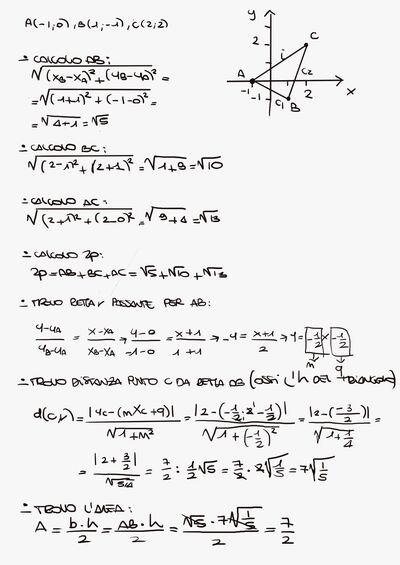 A(-1;0), B(1;-1), C(2;2)
y
2
i
C
A
C2
-1
-1
C1
B
2
x
• CALCOLO AB:
√((xB-xA)²+(yB-yA)²) =
=√((1+1)²+(-1-0)²)=
=√4+1=√5
• CALCOLO BC:
√((2-1)²+(2+1)²)=√1+9=√10
• CALCOLO AC:
√((2+1)²+(2-0)²)=√9+4=√13
• CALCOLO 2p:
2p=AB+BC+AC=√5+√10+√13
• TROVO RETTA r PASSANTE PER AB:
y-yA/yB-yA = x-xA/xB-xA → y-0/-1-0 = x+1/1+1 → -y = x+1/2 → y = -1/2 x -1/2
m q
• TROVO DISTANZA PUNTO C DA RETTA AB (OSSI L'h DEL TRIANGOLO)
d(C,r) = |yC-(mxC+q)|/√1+m² = |2-(-1/2·2-1/2)|/√(1+(-1/2)²) = |2-(-3/2)|/√(1+1/4) =
= |2+3/2|/√5/4 = 7/2 : 1/2 √5 = 7/2 · 2√1/5 = 7√1/5
• TROVO L'AREA:
A = b·h/2 = AB·h/2 = √5·7√1/5/2 = 7/2